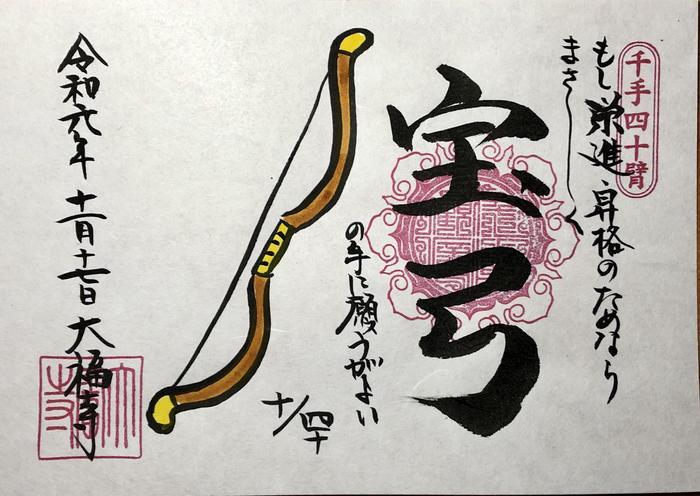 千手四十臂
もし栄進昇格のためなら
まさしく
宝弓
の手に願うがよい
十/四十
令和元年十一月十七日大福寺